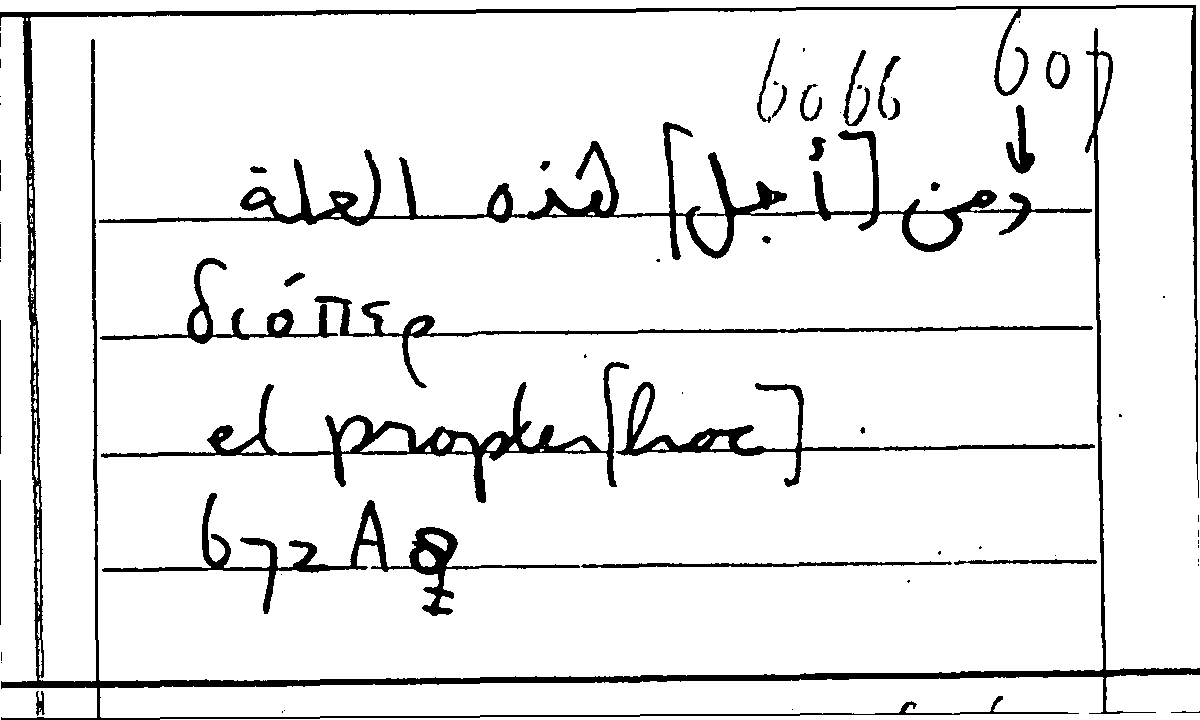 6066 607
ومن [أجل] هذه العلة
διόπερ
et propter [hoc]
672 A 8